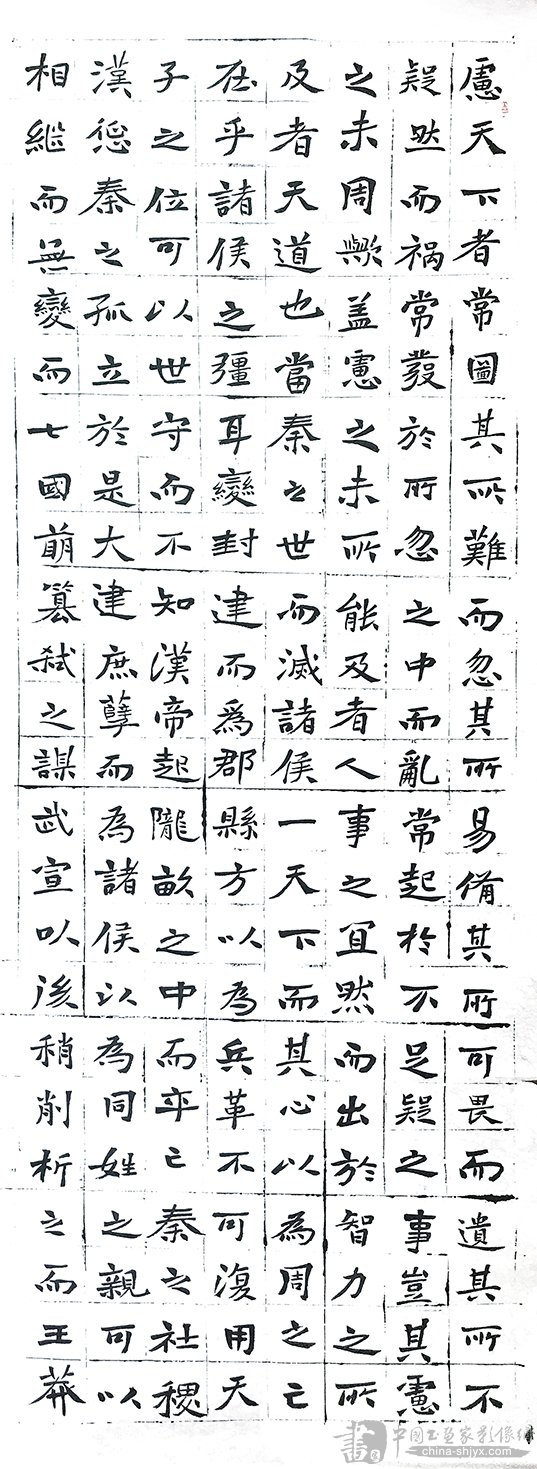 慮天下者常圖其所難而忽其所易俻其所可畏而遺其所不
疑然而禍常發於所忽之中而亂常起於不足疑之事豈其慮
之未周歟盖慮之未所能及者人事之冝然而出於智力之所
及者天道也當秦之世而滅諸侯一天下而其心以為周之亡
在乎諸侯之彊耳變封建而爲郡縣方以為兵革不可復用天
子之位可以世守而不知漢帝起隴畝之中而卒亡秦之社稷
漢懲秦之孤立於是大建庶孽而為諸侯以為同姓之親可以
相繼而無變而七國萌篡弒之謀武宣以後稍削析之而王莽
中国书画家影像
china-shjyx.com